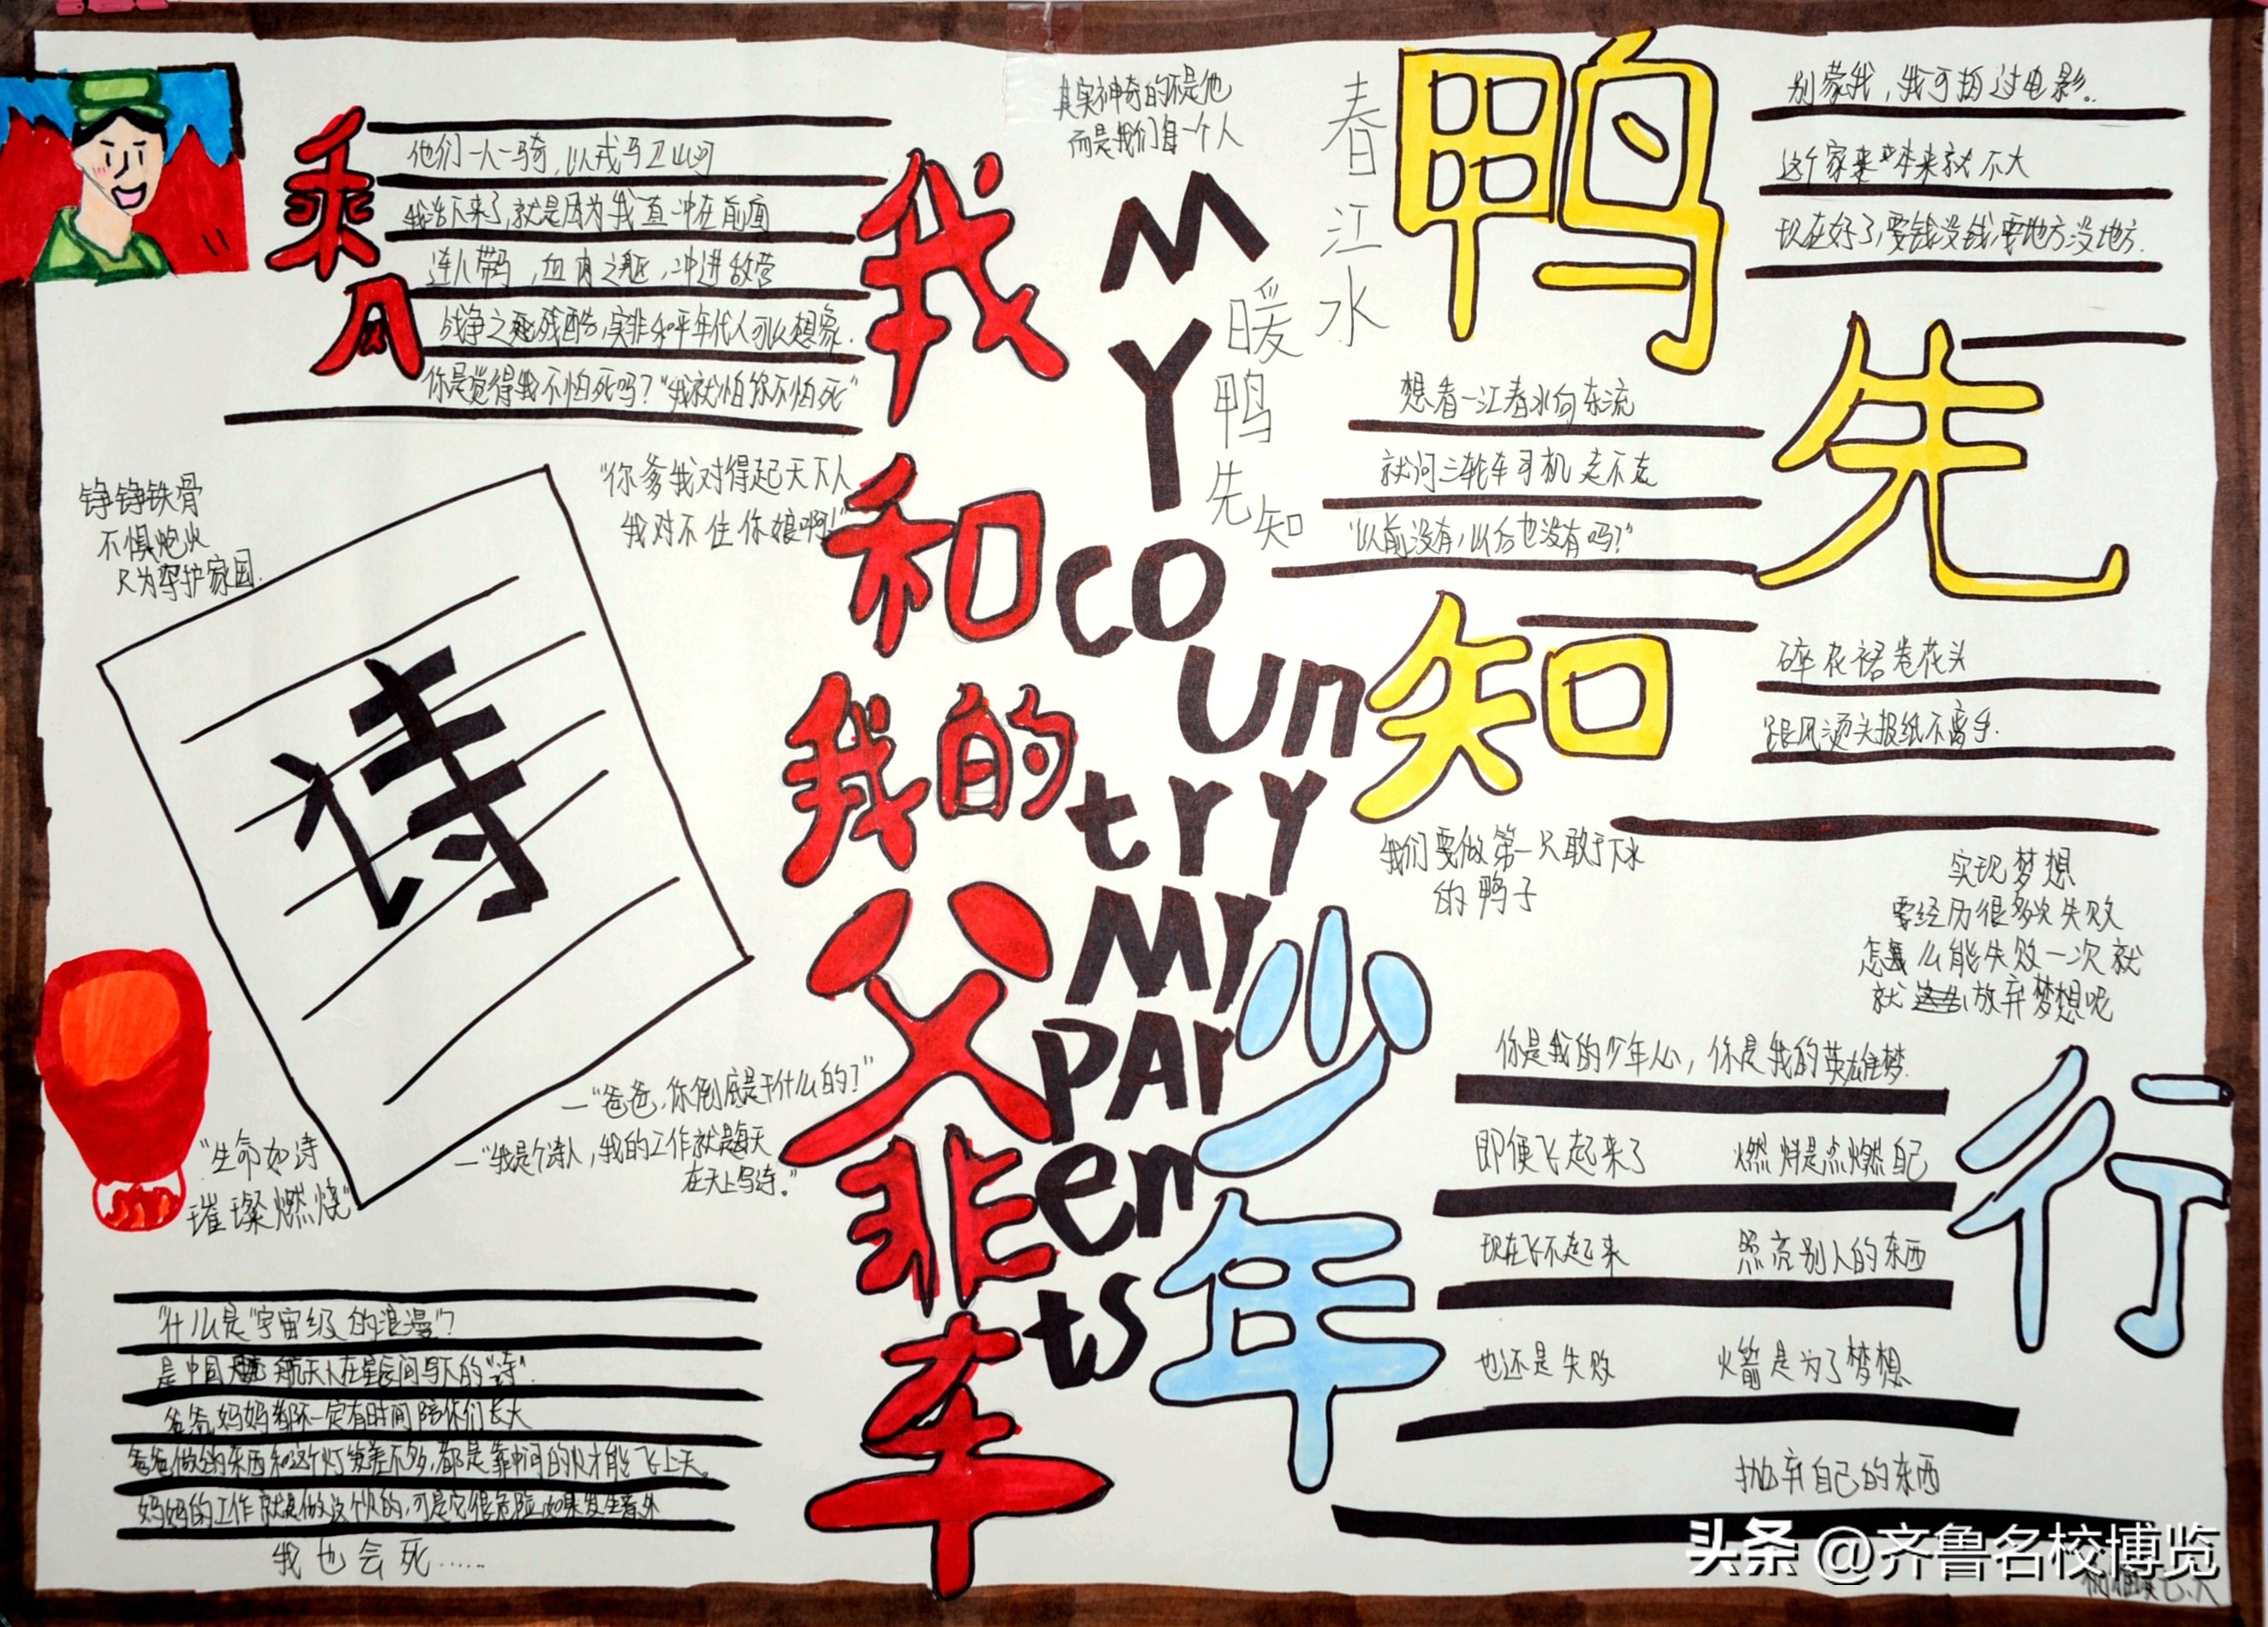 乘风
他们一人一骑，以戎马卫山河
我活下来了，就是因为我直冲在前面
连人带马，血肉之躯，冲进敌营
战争之残酷，实非和平年代人可以想象.
你是觉得我不怕死吗？"我就怕你不怕死"
铮铮铁骨
不惧炮火
只为守护家园.
"你爹我对得起天下人
我对不住你娘啊!"
诗
—"爸爸，你倒底是干什么的?"
—"我是个诗人，我的工作就是每天
在天上写诗。"
"生命如诗
璀璨燃烧"
"什么是"宇宙级的浪漫"?
是中国航天人在星辰间写下的"诗".
爸爸妈妈都不一定有时间陪你们长大
爸爸做的东西和这个灯笼差不多，都是靠中间的火才能飞上天。
妈妈的工作就是做这个火的，可是它很危险，如果发生意外
我也会死……
我和我的父非车
MY
COUntry
MY
PArents
其实神奇的不是他
而是我们每一个人
春江水
暖鸭先知
鸭先知
别蒙我，我可拍过电影。
这个家本来就不大
现在好了，要钱没钱，要地方没地方.
想看一江春水向东流
就问三轮车司机走不走
"以前没有，以后也没有吗?"
碎花裙卷花头
跟风烫头报纸不离手.
我们要做第一只敢于下水
的鸭子
少年行
实现梦想
要经历很多次失败
怎么能失败一次就
就放弃梦想呢
你是我的少年心，你是我的英雄梦.
即便飞起来了
现在飞不起来
也还是失败
燃烧是点燃自己
照亮别人的东西
火箭是为了梦想
抛弃自己的东西
头条 @齐鲁名校博览